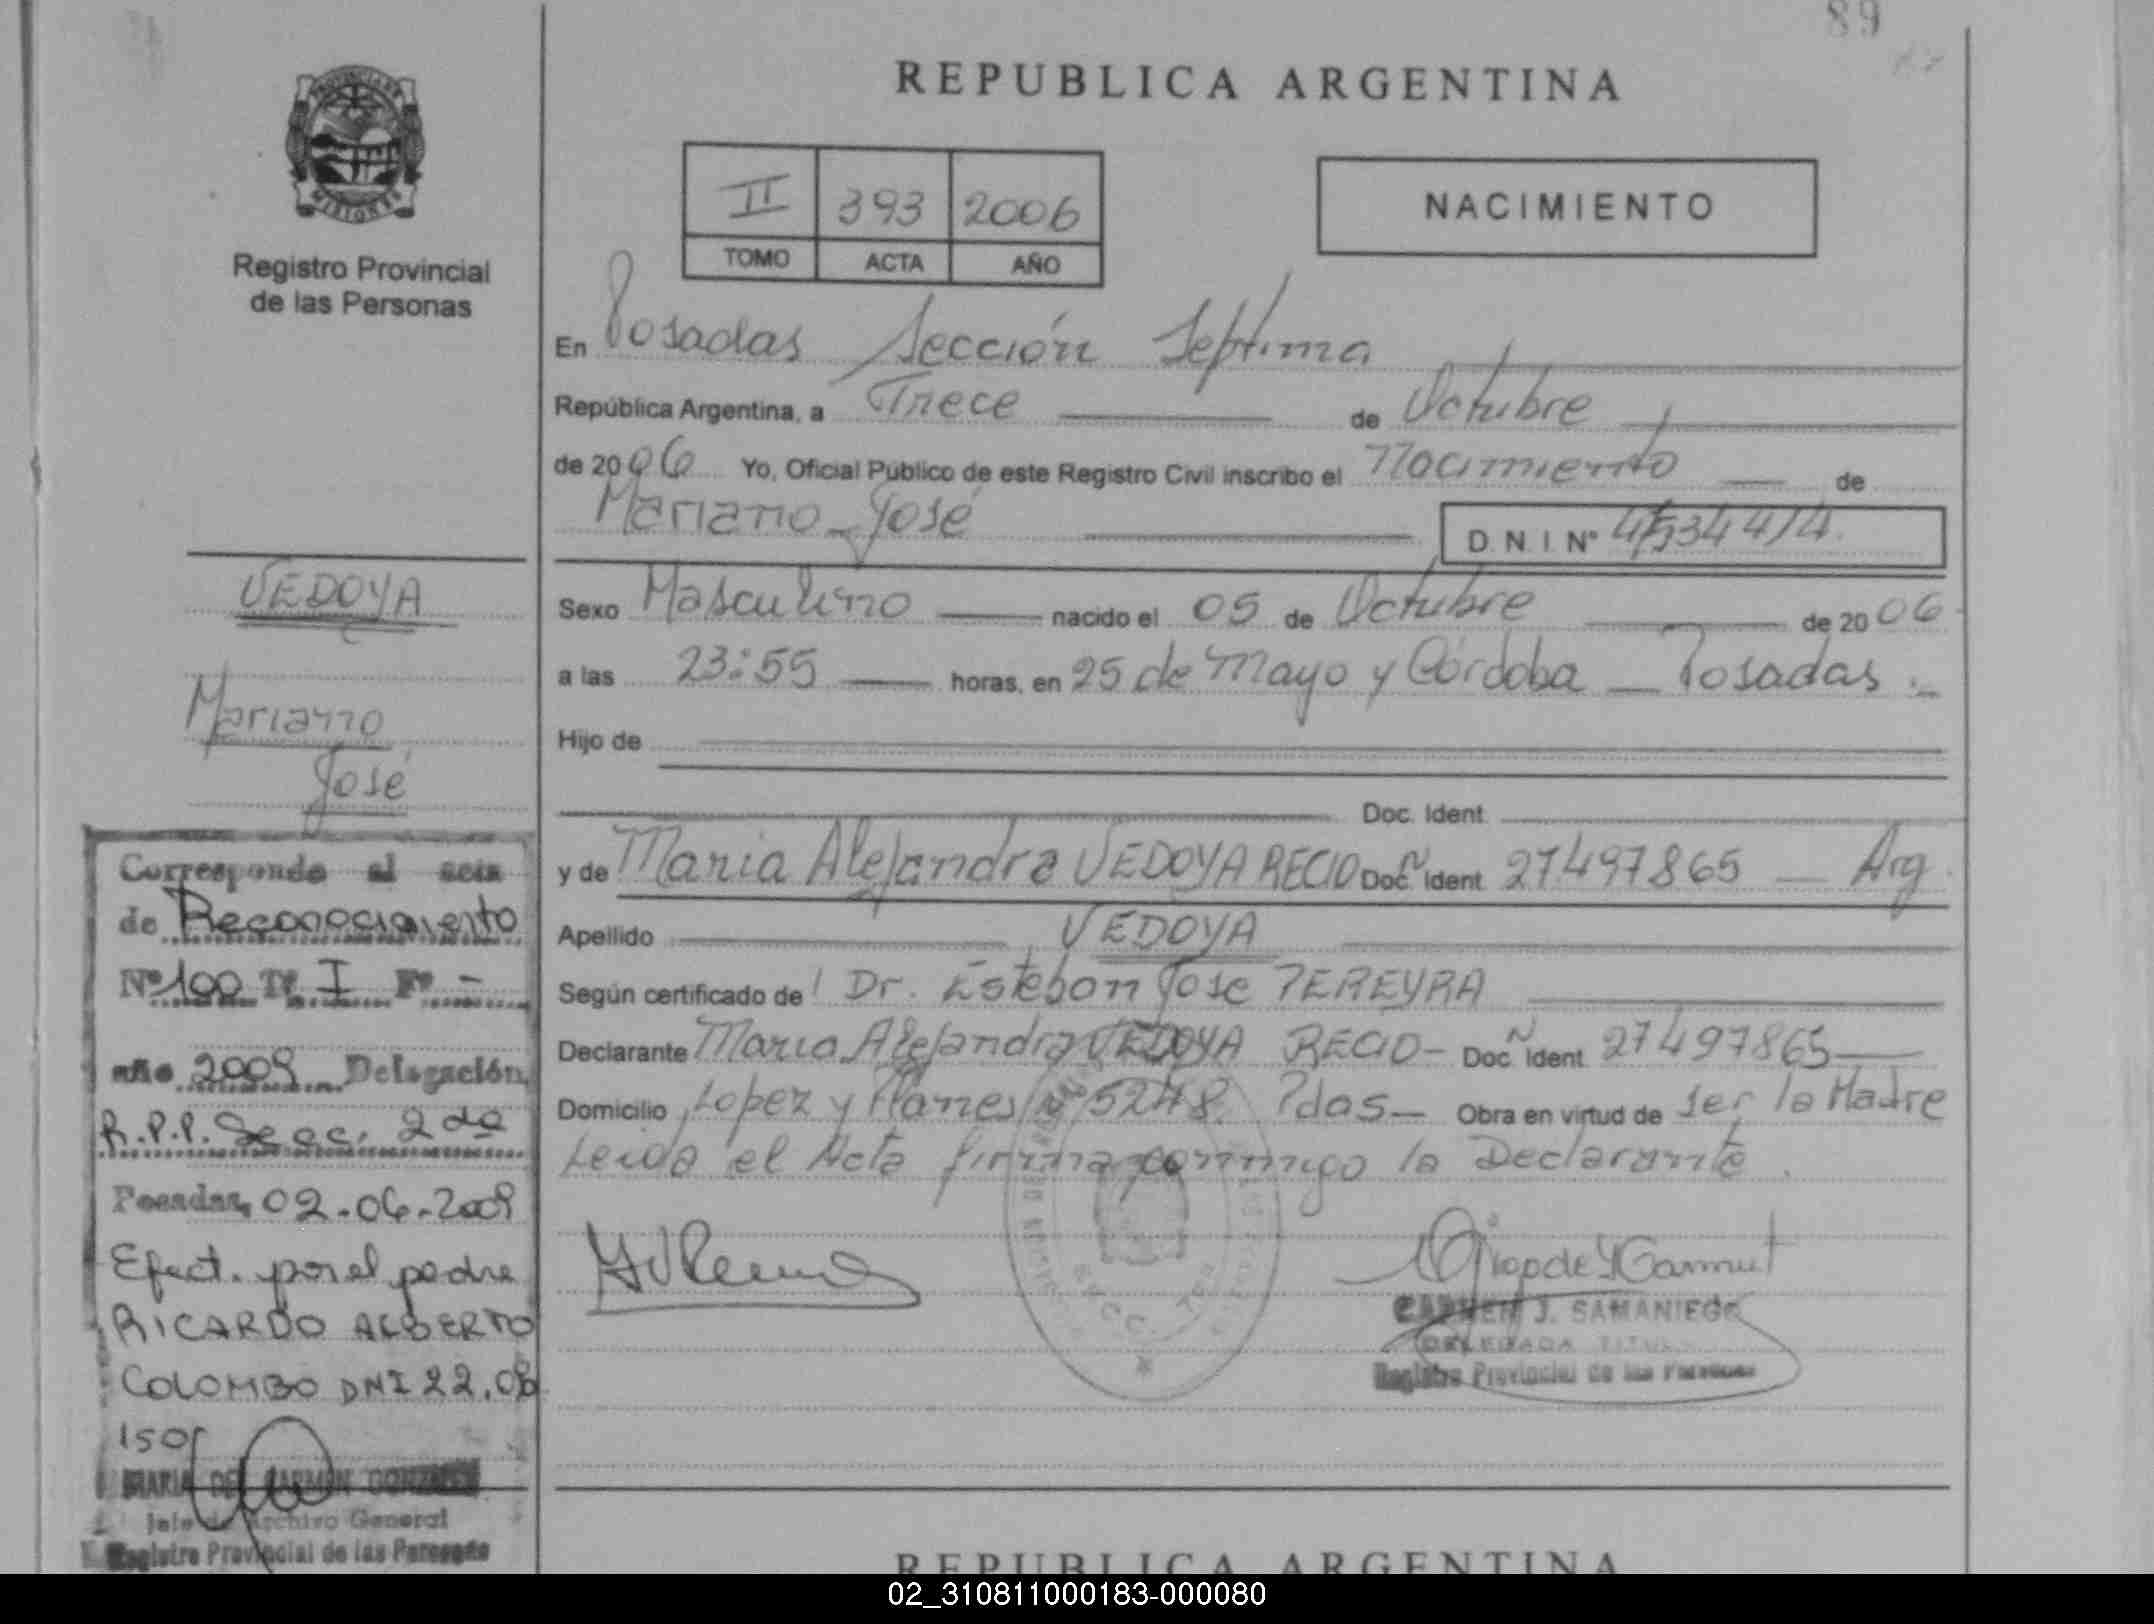 89
REPUBLICA ARGENTINA
PROVINCIA DE
MISIONES
Registro Provincial
de las Personas
II 393 2006
TOMO ACTA AÑO
NACIMIENTO
En Posadas Sección Septima
República Argentina, a Trece de Octubre
de 2006 Yo, Oficial Público de este Registro Civil inscribo el Nacimiento de
Mariano José
D.N.I Nº
Sexo Masculino nacido el 05 de Octubre de 2006
a las 23:55 horas, en 25 de Mayo y Córdoba - Posadas.-
Hijo de
Doc. Ident.
y de Maria Alejandra VEDOYA RECIO Doc. Ident. 27497865 - Arg.
Apellido VEDOYA
Según certificado de Dr. Esteban Jose PEREYRA
Declarante Maria Alejandra VEDOYA RECIO - Doc. Ident. 27497865
Domicilio Lopez y Planes Nº 5248. Pdas - Obra en virtud de ser la Madre
Leida el Acta firma conmigo la Declarante.
CARMEN J. SAMANIEGO
DELEGADA TITULAR
Registro Provincial de las Personas
VEDOYA
Mariano
José
Corresponde al acta
de Reconocimiento
Nº 100 Tº I Fº -
año 2009 Delegación
R.P.P. Secc. 2da
Posadas, 02-06-2009
Efect. por el padre
RICARDO ALBERTO
COLOMBO DNI 22.08
150
MARIA DEL CARMEN GONZALEZ
Jefe de Archivo General
Registro Provincial de las Personas
REPUBLICA ARGENTINA
02_310811000183-000080